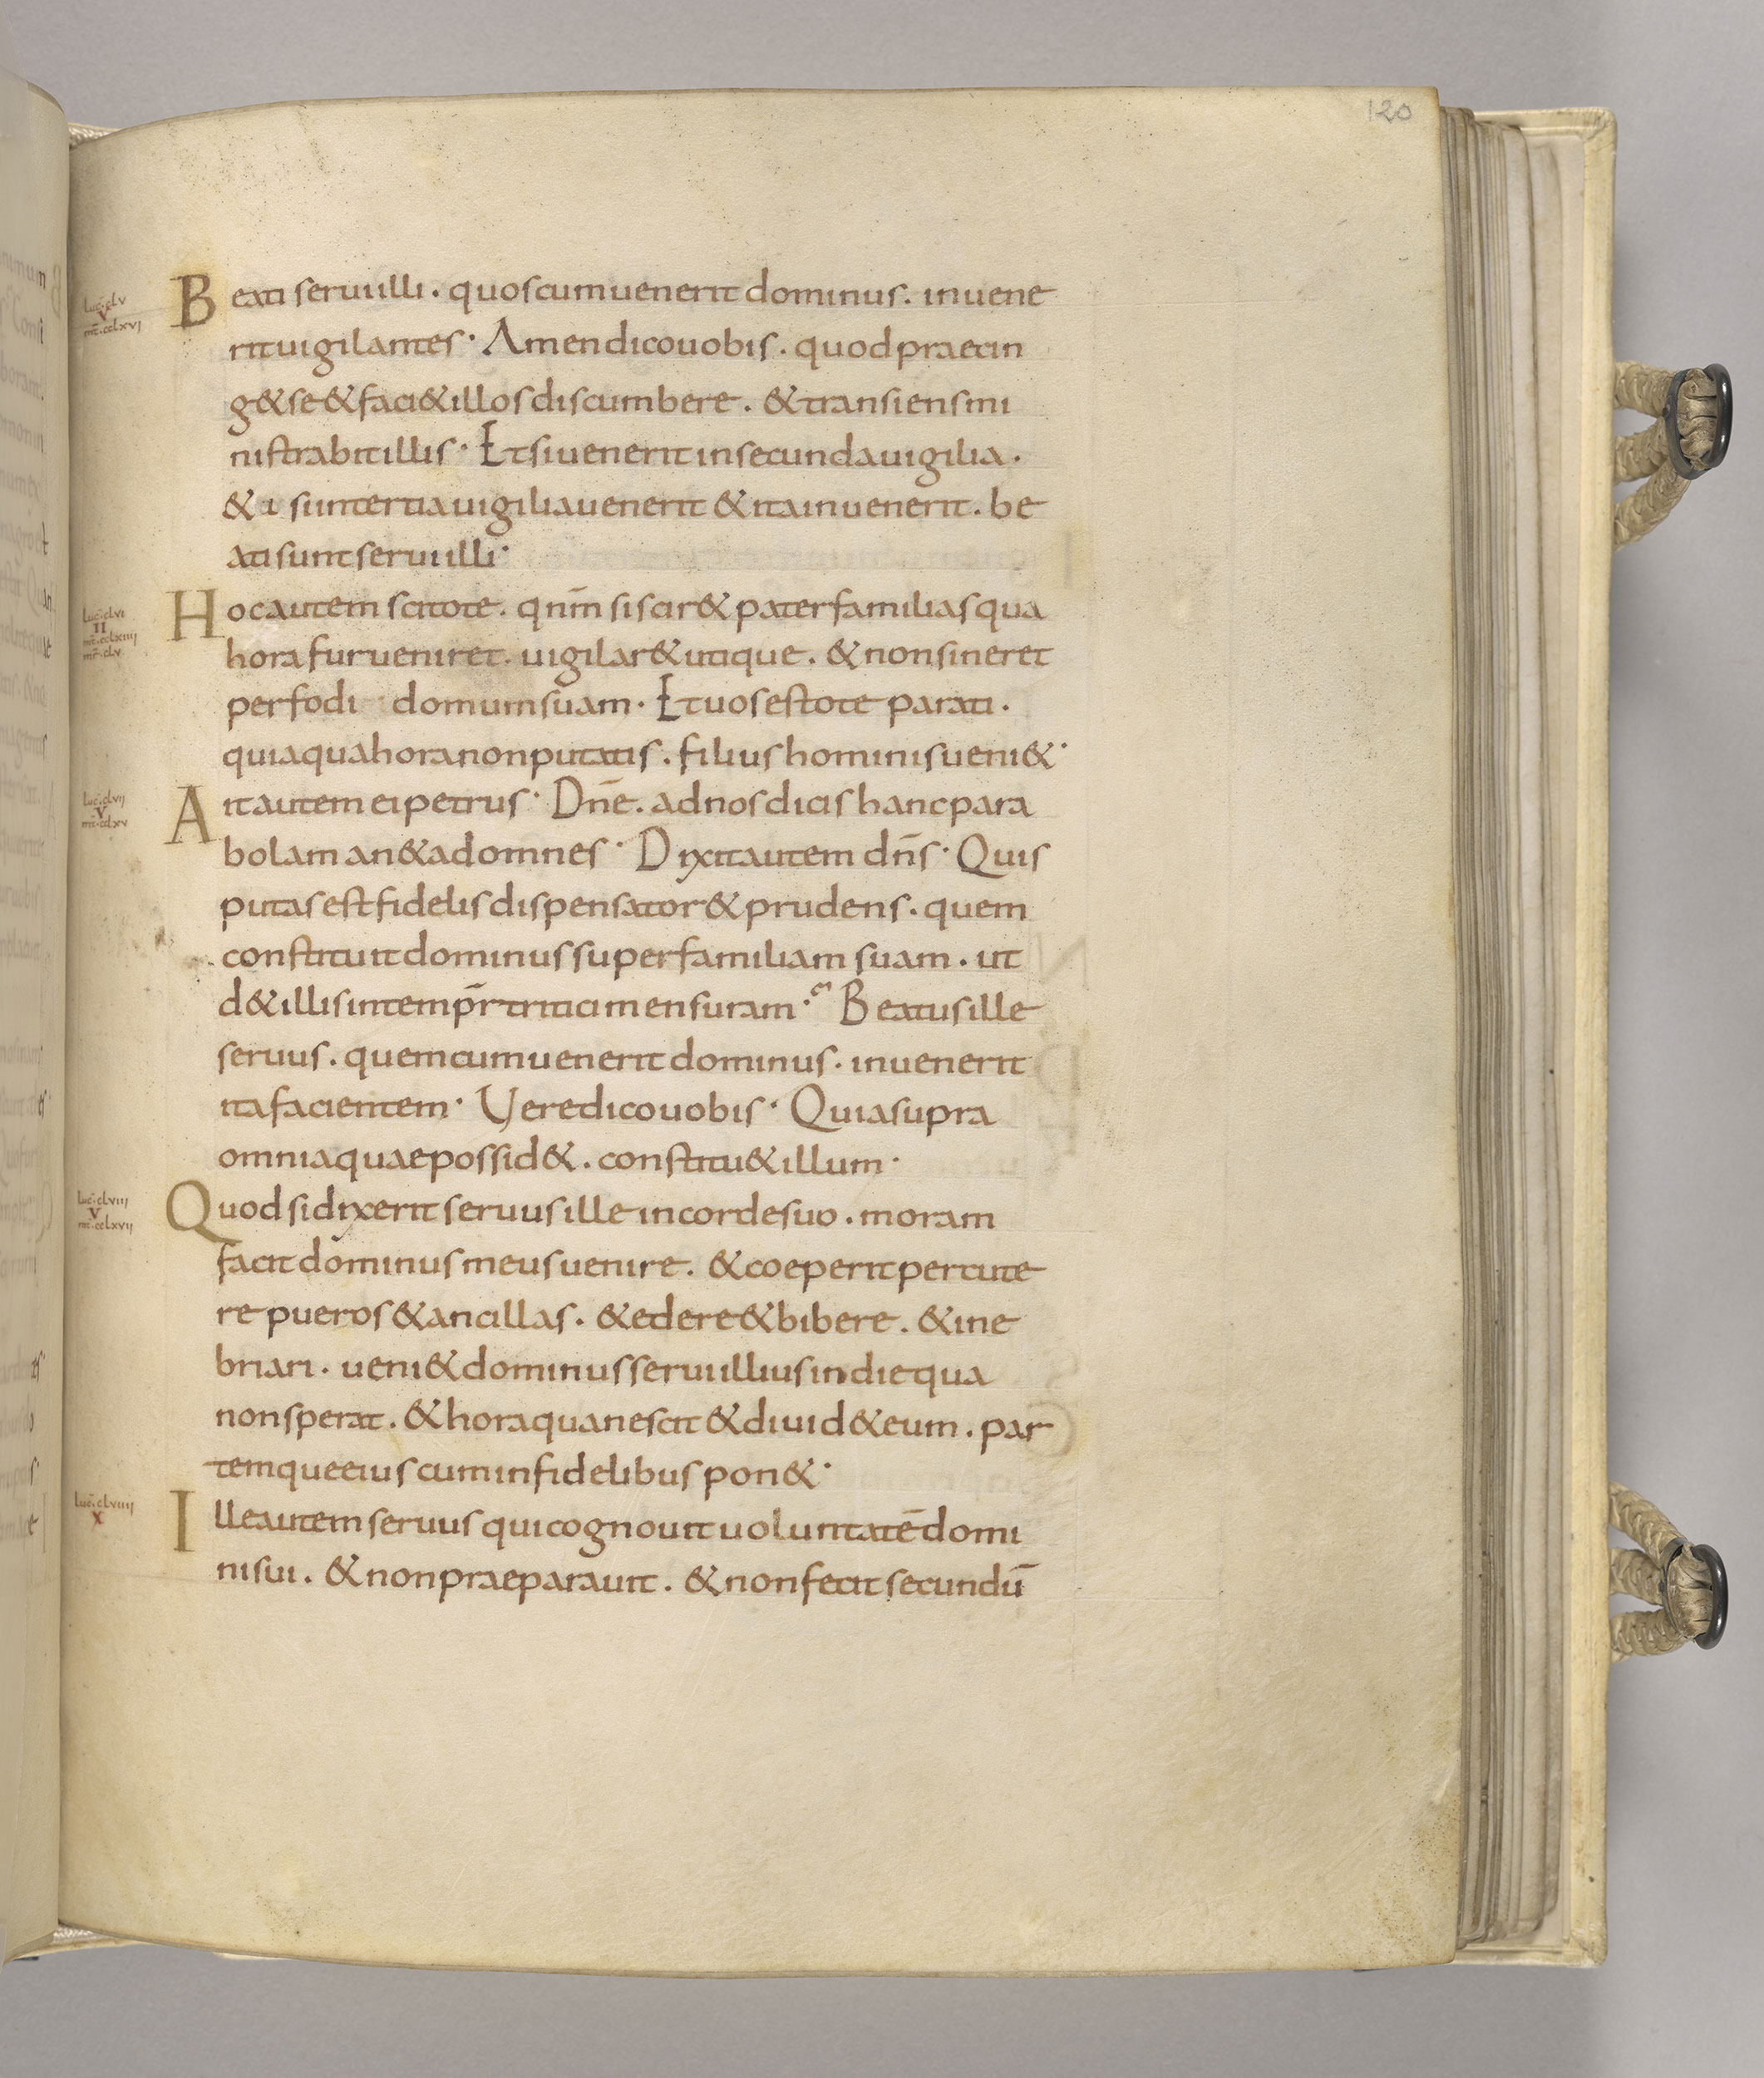 120
Beati serui illi. quos cum uenerit dominus. inuene
luc̄. clv
v
mt̄. cclxvi
rit uigilantes· Amen dico uobis. quod praecin
g& se & faci& illos discumbere. & transiens mi
nistrabit illis· Et si uenerit in secunda uigilia.
& si in tertia uigilia uenerit & ita inuenerit. be
ati sunt serui illi·
Hoc autem scitote. qnm̄ si scir& pater familias qua
luc̄. clvi
II
mt̄. cclxiiii
mr̄. clv
hora fur ueniret. uigilar& utique. & non sineret
perfodi domum suam. Et uos estote parati.
quia qua hora non putatis. filius hominis ueni&·
Ait autem ei petrus· Dn̄e. ad nos dicis hanc para
luc̄. clvii
v
mt̄. cclxv
bolam an & ad omnes· Dixit autem dn̄s· Quis
putas est fidelis dispensator & prudens. quem
constituit dominus super familiam suam. ut
d& illis in temp̄r tritici mensuram· Beatus ille
seruus. quem cum uenerit dominus. inuenerit
ita facientem· Uere dico uobis· Quia supra
omnia quae possid&. constitu& illum·
Quod si dixerit seruus ille in corde suo. moram
luc̄. clviii
v
mt̄. cclxvii
facit dominus meus uenire. & coeperit percute
re pueros & ancillas. & edere & bibere. & ine
briari. ueni& dominus serui illius in die qua
non sperat. & hora qua nescit & diuid& eum. par
temque eius cum infidelibus pon&·
Ille autem seruus qui cognouit uoluntatē domi
luc̄. clviiii
x
ni sui. & non praeparauit. & non fecit secundū